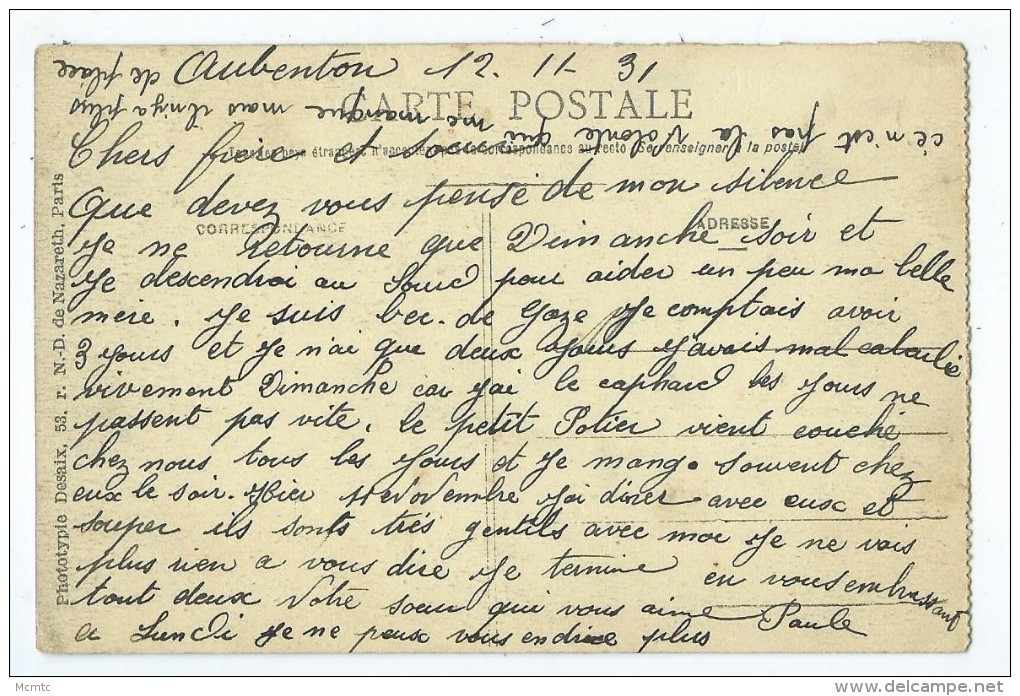 Aubenton 12. 11 - 31
CARTE POSTALE
Chers frère et
Tous les pays étrangers n'acceptent pas la correspondance au recto (Se renseigner à la poste)
Que devez vous pensé de mon silence
CORRESPONDANCE
ADRESSE
Je ne Retourne que Dimanche soir et
Je descendrai au pour aider un peu ma belle
mère. Je suis bec. de Gaze Je comptais avoir
3 Jours et Je n'ai que deux Jours J'avais mal calculée
vivement Dimanche car J'ai le caphard les Jours ne
passent pas vite. le petit Potier vient couché
chez nous tous les Jours et Je mange souvent chez
eux le soir. Hier 11 Novembre J'ai diner avec eux et
souper ils sonts très gentils avec moi Je ne vois
plus rien a vous dire Je termine en vous embrassant
tout deux Votre soeur qui vous aime Paule
a Lundi Je ne peux vous en dire plus
ce n'est pas la Volonté qui
me manque mais il n'y a plus
de place
Phototypie Desaix, 53, r. N.-D. de Nazareth, Paris
Mcmtc
www.delcampe.net